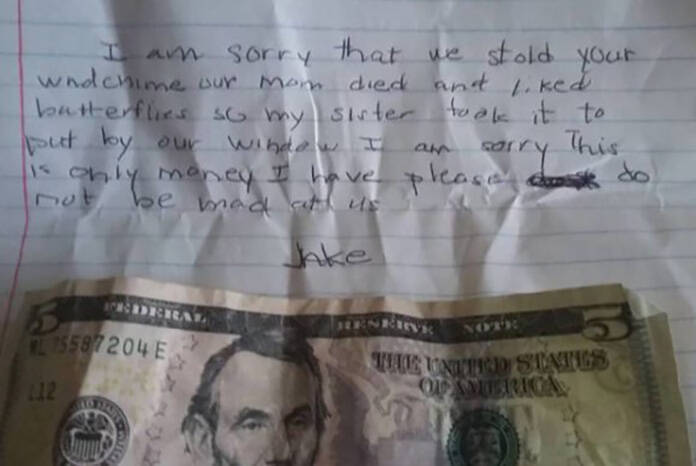 I am sorry that we stold your
wndchime our mom died and liked
butterflies so my sister took it to
put by our window I am sorry This
is only money I have please do
not be mad att us
Jake
FEDERAL RESERVE NOTE
5 5
THE UNITED STATES
OF AMERICA
L12